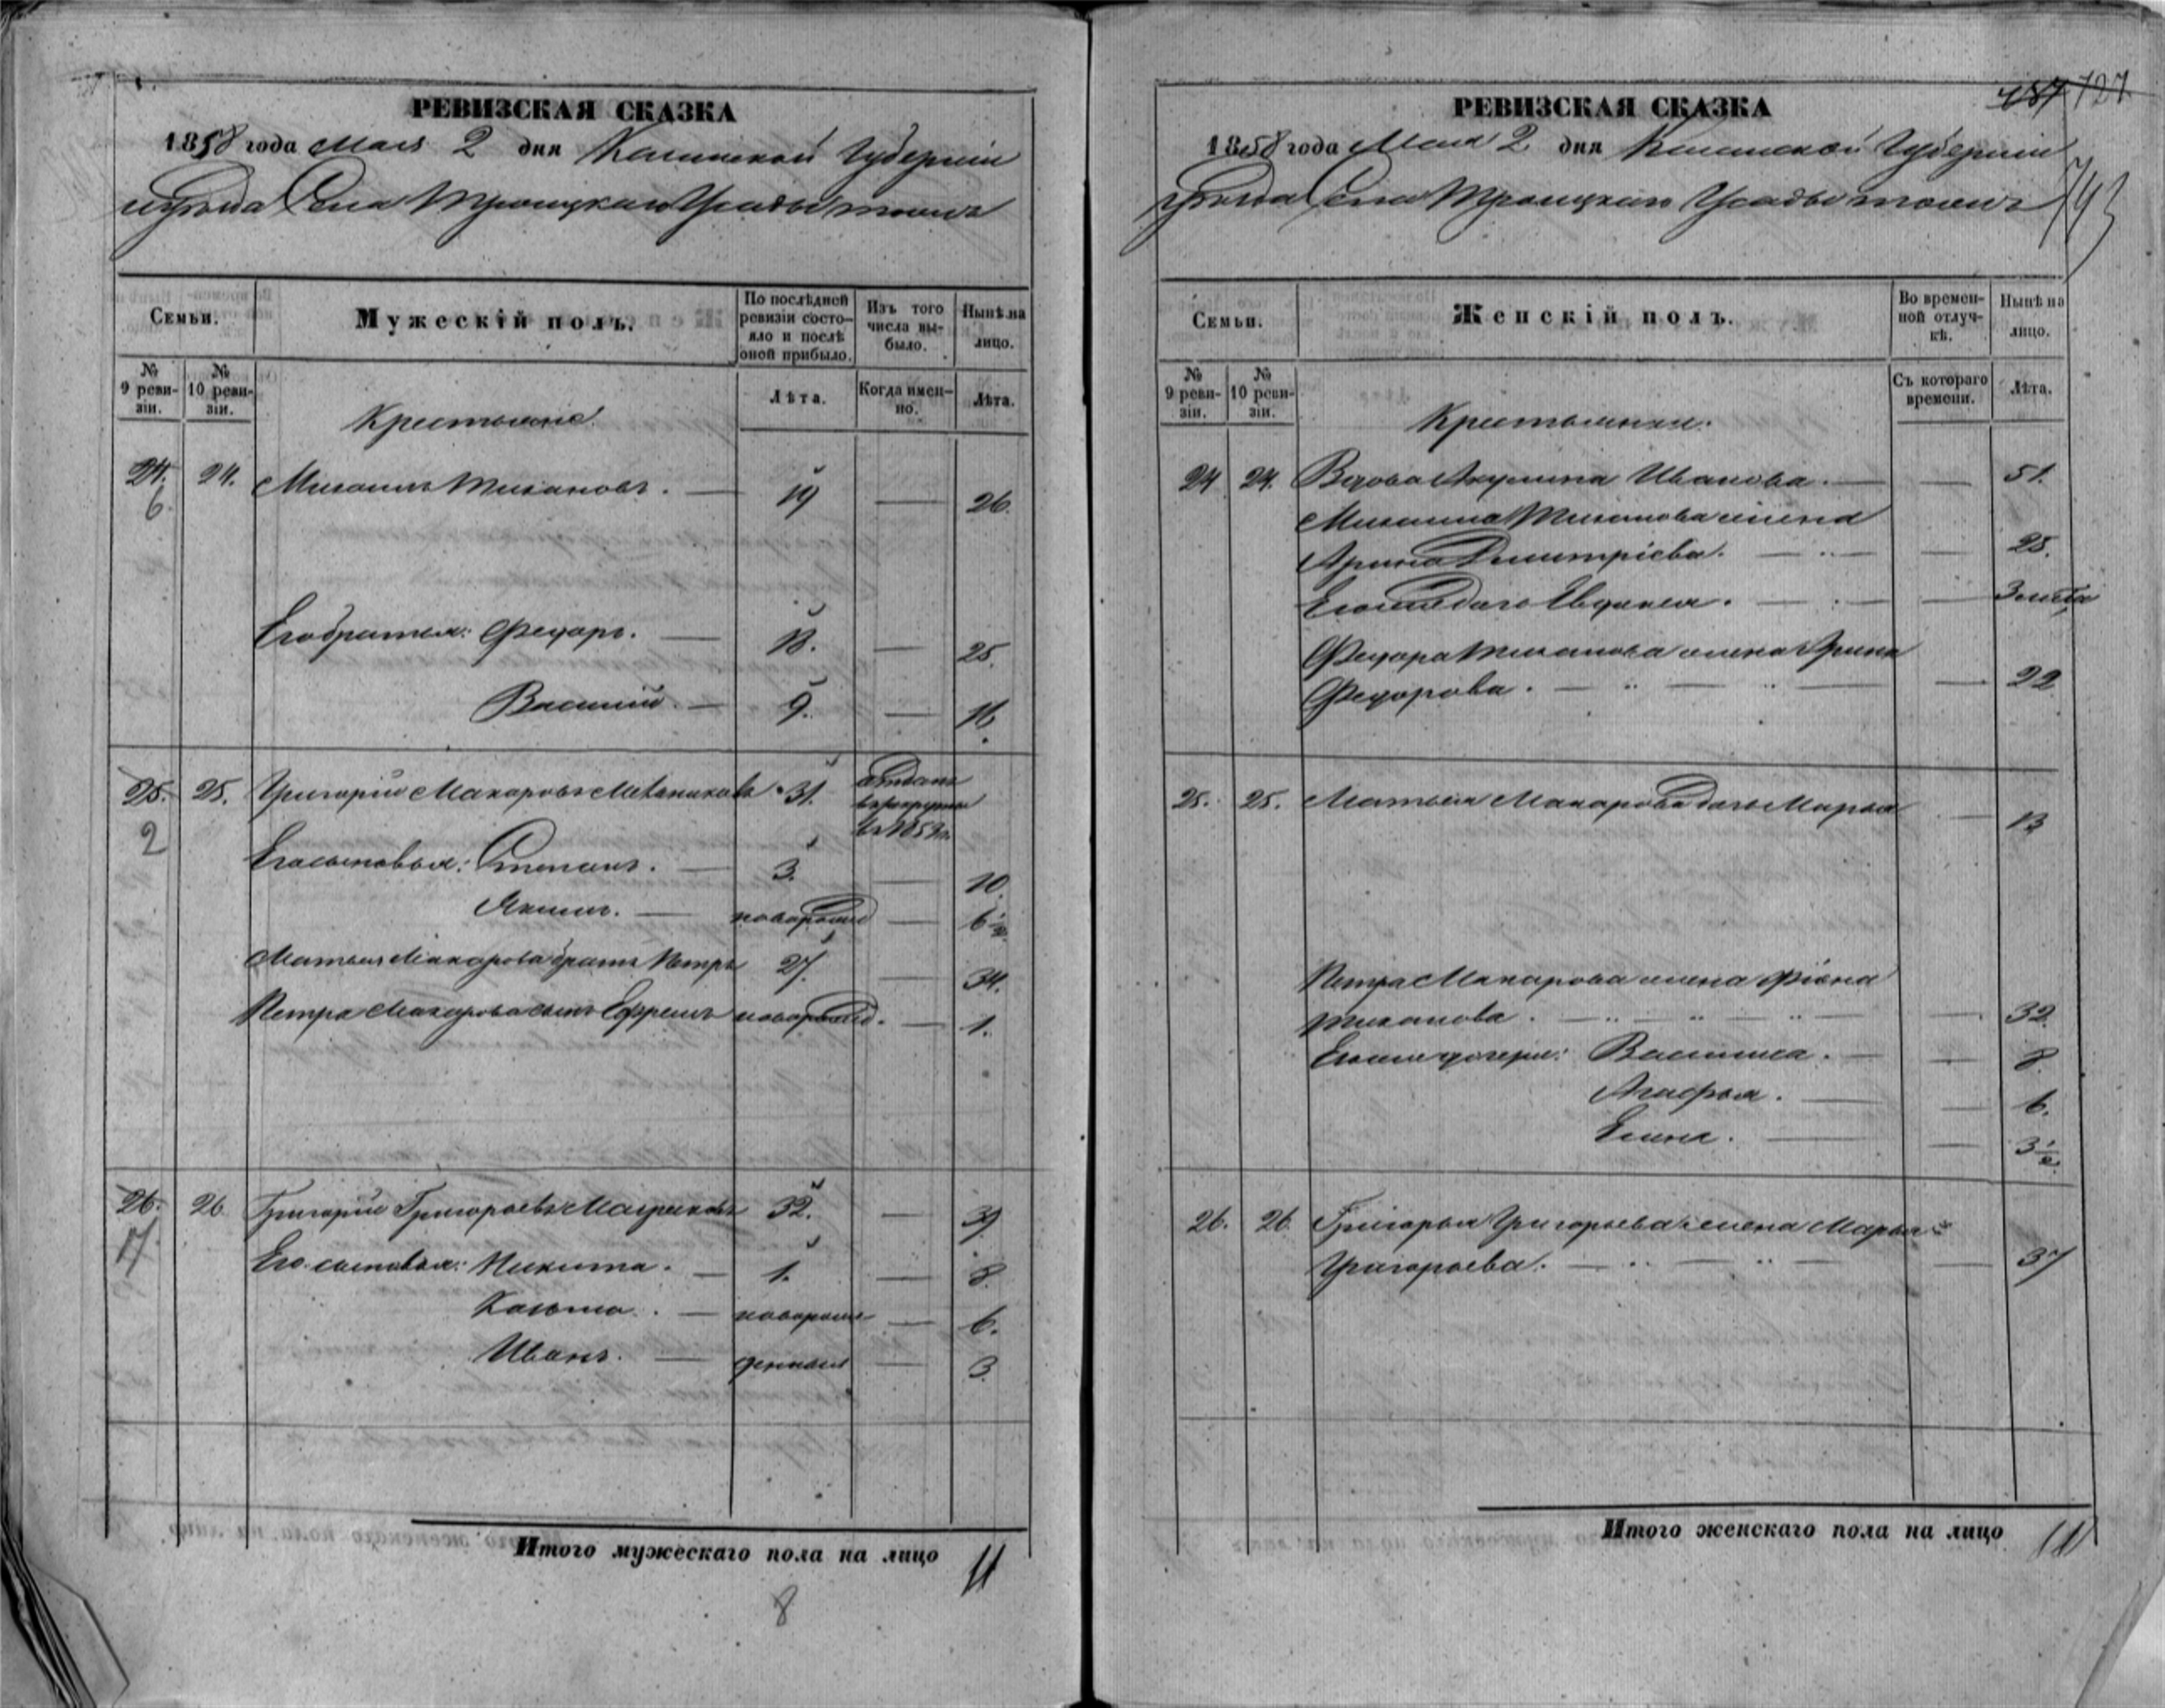 РЕВИЗСКАЯ СКАЗКА
1858 года Мая 2 дня Казанской Губерніи
уѣзда Села Троицкаго Усады тожъ
Семьи.
Мужескій полъ.
По послѣдней ревизіи состояло и послѣ оной прибыло.
Изъ того числа выбыло.
Нынѣ на лицо.
№ 9 ревизіи.
№ 10 ревизіи.
Лѣта.
Когда именно.
Лѣта.
Крестьяне
24. 24. Михаилъ Тихановъ. — 19 — 26.
6.
Его братья: Федоръ. — 18. — 25.
Василій. — 9. — 16.
25. 25. Григорій Макаровъ 31. отданъ
въ рекруты
2
Его сыновья: Степанъ. — 3. — 10.
Якимъ. — новорожд — 6 1/2
Матвея Макарова братъ Петръ 27. — 34.
Петра Макарова сынъ Ефремъ новорожд. — 1.
26. 26 Григорій Григорьевъ 32. — 39
17.
Его сыновья: Никита. — 1. — 8.
Козьма. — новорож — 6.
Иванъ. — денныя — 3.
Итого мужескаго пола на лицо 11
8
727
РЕВИЗСКАЯ СКАЗКА
1858 года Мая 2 дня Казанской Губерніи
уѣзда Села Троицкаго Усады тожъ
743
Семьи.
Женскій полъ.
Во временной отлучкѣ.
Нынѣ на лицо.
№ 9 ревизіи.
№ 10 ревизіи.
Съ котораго времени.
Лѣта.
Крестьянки.
24 24. Вдова Акулина Иванова. — — 51.
Михаила Тиханова жена
Арина Дмитріева. — — 25.
Его дочь Евдокея. — — 3 лѣта
Федора Тиханова жена Арина
Федорова. — — 22
25. 25. Матвея Макарова дочь Марья — 13
Петра Макарова жена Фіона
Тиханова. — — 32.
Его же дочери: Василиса. — — 8.
Агафья. — — 6.
Елена. — — 3 1/2
26. 26. Григорья Григорьева жена Марья
Григорьева. — — 37
Итого женскаго пола на лицо 10